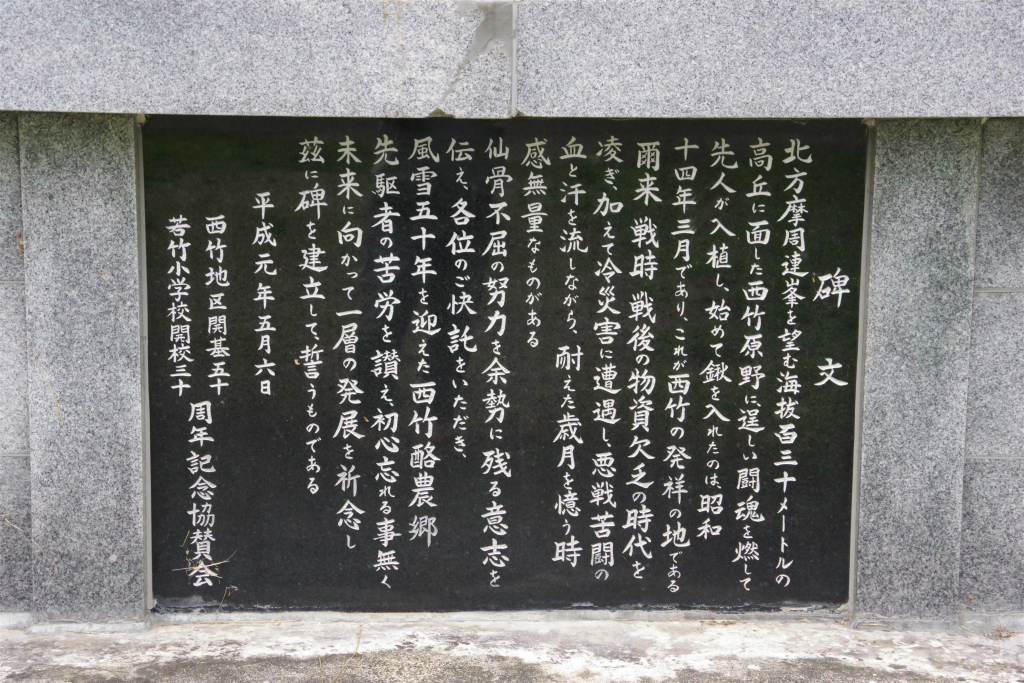 碑文
北方摩周連峯を望む海抜百三十メートルの
高丘に面した西竹原野に逞しい闘魂を燃して
先人が入植し、始めて鍬を入れたのは、昭和
十四年三月であり、これが西竹の発祥の地である
爾来 戦時 戦後の物資欠乏の時代を
凌ぎ、加えて冷災害に遭遇し、悪戦苦闘の
血と汗を流しながら、耐えた歳月を憶う時
感無量なものがある
仙骨不屈の努力を余勢に残る意志を
伝え、各位のご快託をいただき、
風雪五十年を迎えた西竹酪農郷
先駆者の苦労を讃え、初心忘れる事無く
未来に向かって一層の発展を祈念し
茲に碑を建立して、誓うものである
平成元年五月六日
西竹地区開基五十
若竹小学校開校三十
周年記念協賛会